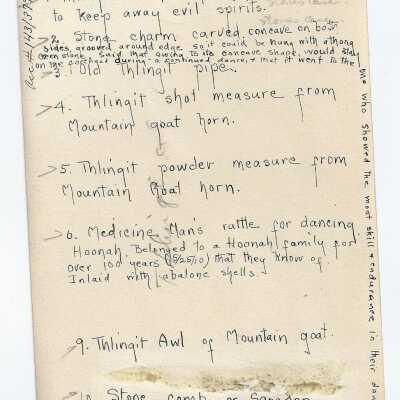 to keep away evil spirits.
2. Stone charm carved, concave on both
sides, grooved around edge so it could be hung with a thong
on the forehead during a continued dance, & that it went to the
one who showed the most skill & endurance in their dan
3. Old Thlingit pipe.
4. Thlingit shot measure from
Mountain goat horn.
5. Thlingit powder measure from
Mountain Goat horn.
6. Medicine Man's rattle for dancing
Hoonah. Belonged to a Hoonah family for
over 100 years (5/25/10) that they know of.
Inlaid with abalone shells.
9. Thlingit Awl of Mountain goat.
10. Stone comb or